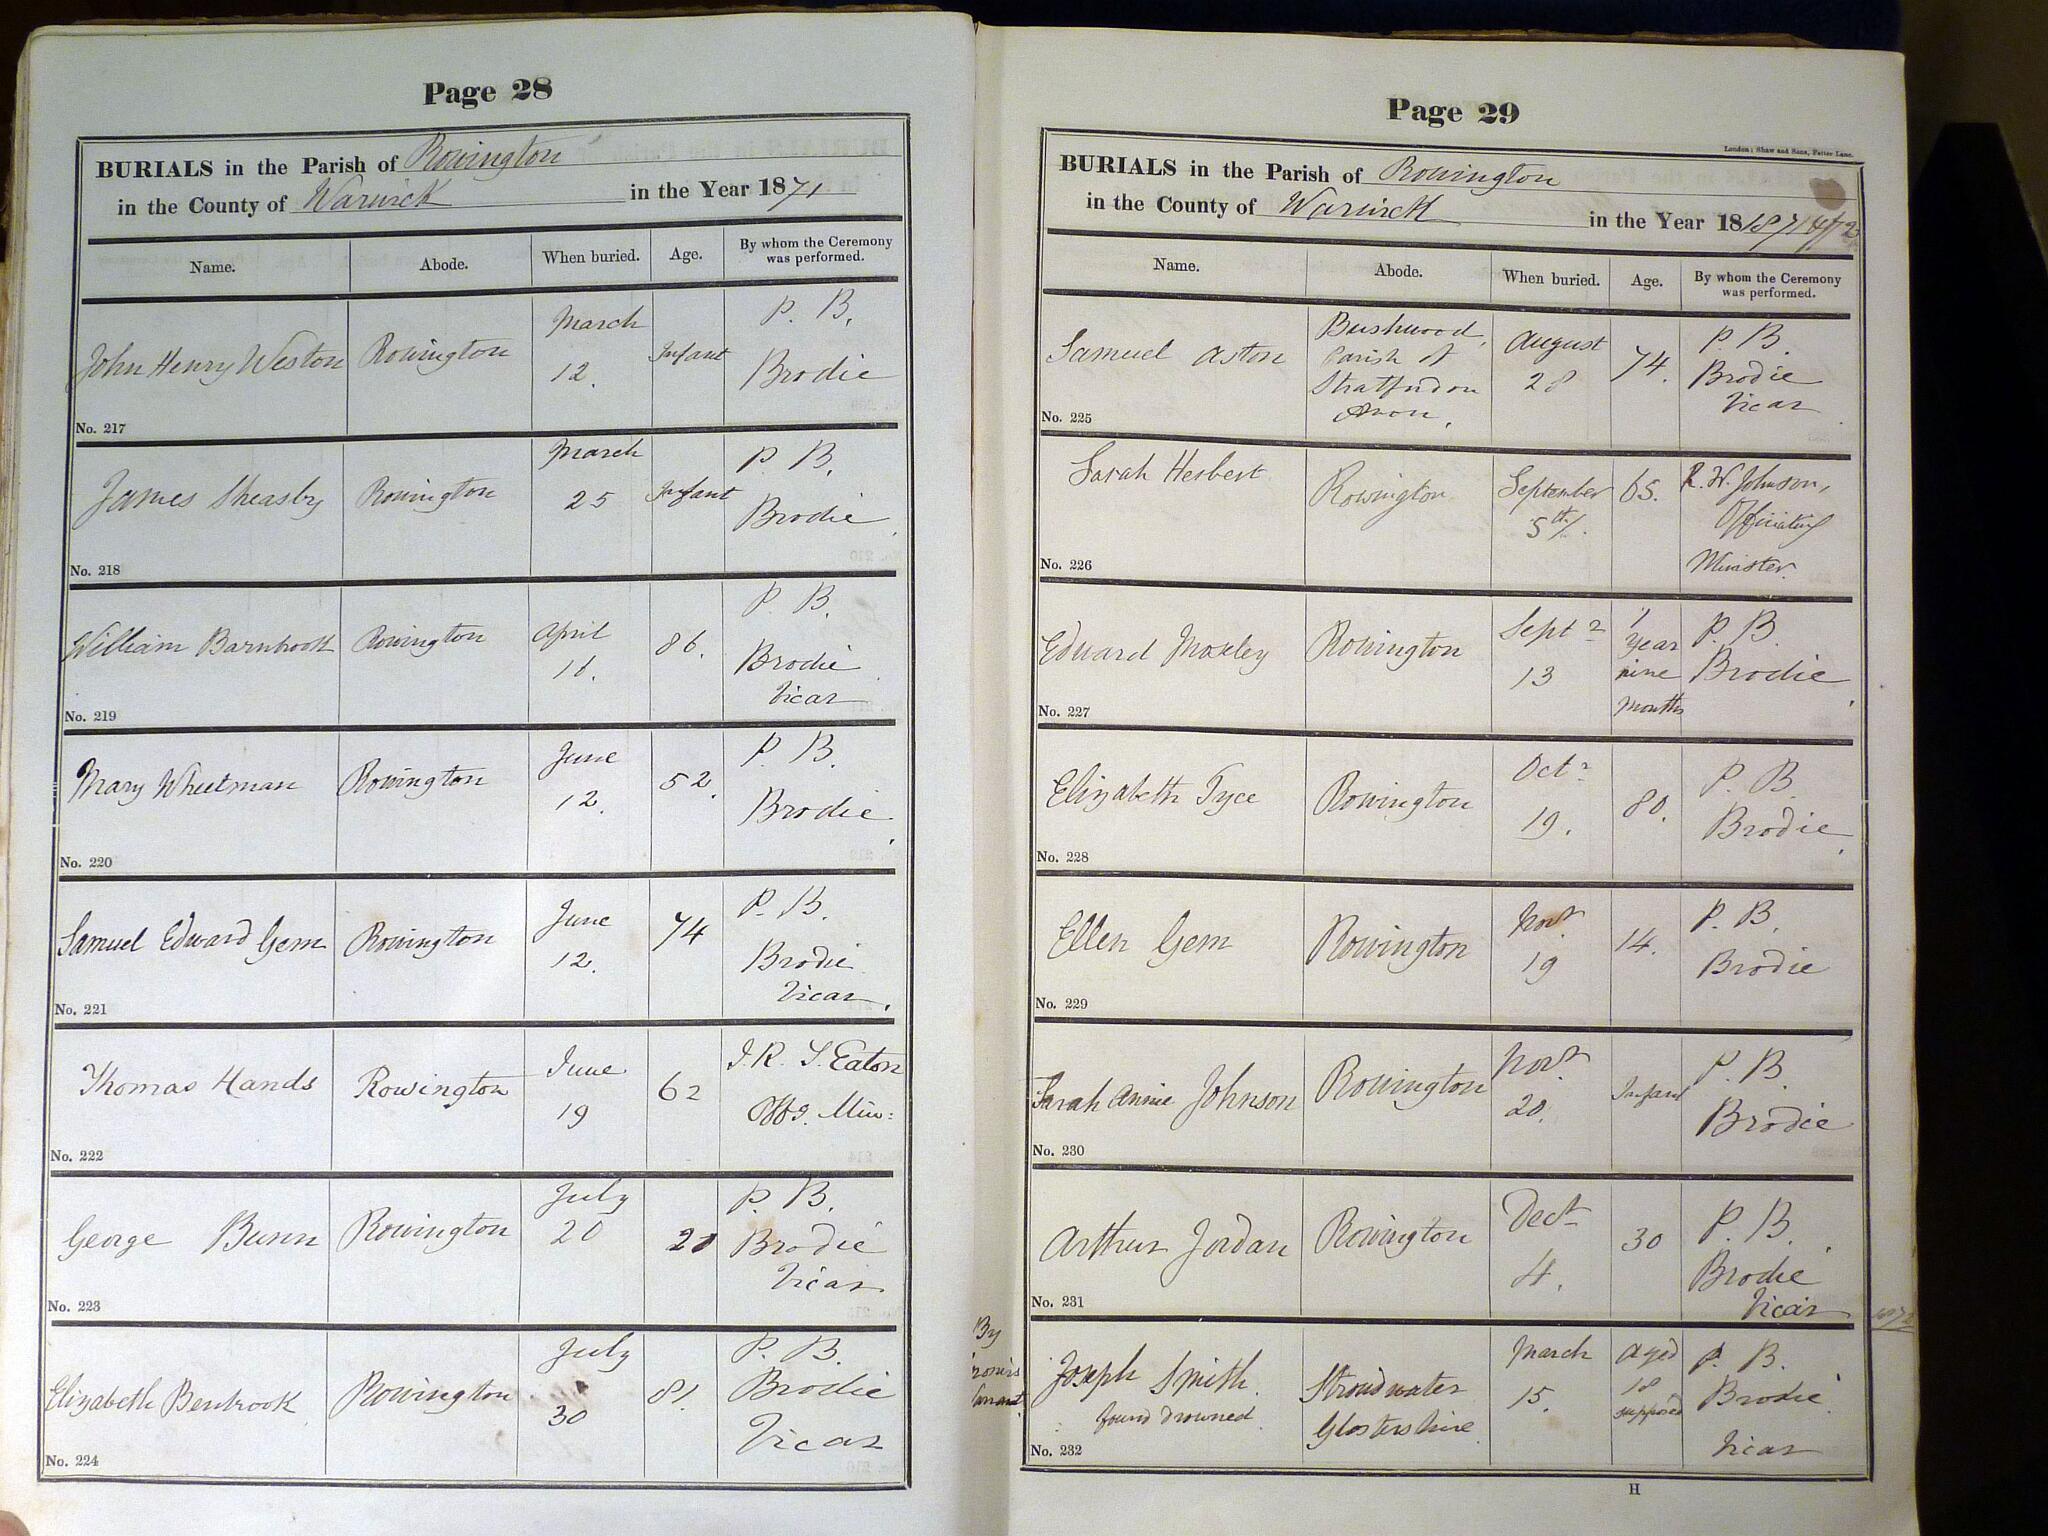 Page 28
BURIALS in the Parish of Rowington
in the County of Warwick in the Year 1871
Name. Abode. When buried. Age. By whom the Ceremony was performed.
John Henry Weston Rowington March 12. Infant P. B. Brodie
No. 217
James Sheasby Rowington March 25 Infant P. B. Brodie
No. 218
William Barnbrook Rowington April 11. 86. P. B. Brodie Vicar
No. 219
Mary Wheetman Rowington June 12. 52. P. B. Brodie
No. 220
Samuel Edward Gem Rowington June 12. 74 P. B. Brodie Vicar
No. 221
Thomas Hands Rowington June 19 62 J. R. T. Eaton Offg. Min:
No. 222
George Bunn Rowington July 20 P. B. Brodie Vicar
No. 223
Elizabeth Benbrook Rowington July 30 81. P. B. Brodie Vicar
No. 224
Page 29
London: Shaw and Sons, Fetter Lane.
BURIALS in the Parish of Rowington
in the County of Warwick in the Year 18 1871
Name. Abode. When buried. Age. By whom the Ceremony was performed.
Samuel Aston Bushwood, Parish of Stratford on Avon, August 28 74. P B. Brodie Vicar
No. 225
Sarah Herbert Rowington September 5th/. 65. R. W. Johnson, Officiating Minister.
No. 226
Edward Moxley Rowington Septr 13 1 year nine months P. B Brodie
No. 227
Elizabeth Tyce Rowington Octr 19. 80. P. B. Brodie
No. 228
Ellen Gem Rowington Novr 19 14. P. B. Brodie
No. 229
Sarah Annie Johnson Rowington Novr 20. Infant P. B. Brodie
No. 230
Arthur Jordan Rowington Decr 4. 30 P. B. Brodie Vicar
No. 231
1872
By
Joseph Smith. found drowned. Stroudwater Glostershire. March 15. aged 18 supposed P. B. Brodie Vicar
No. 232
H